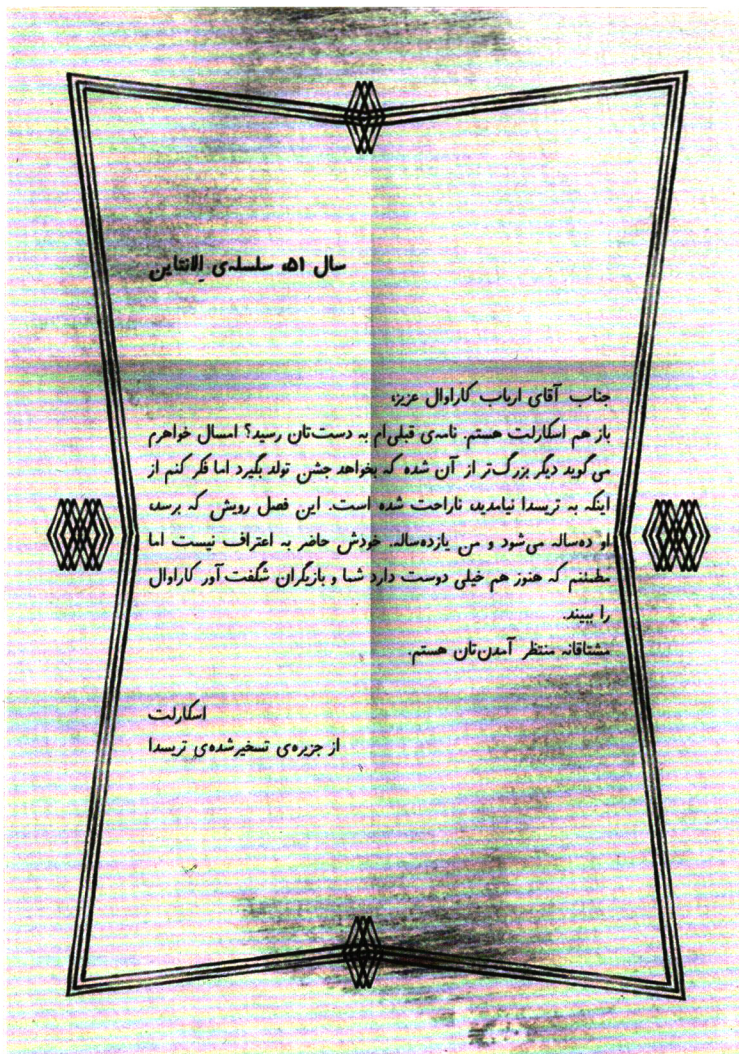 سال ۵۱، سلسله‌ی الانتاین
جناب آقای ارباب کاراوال عزیز،
باز هم اسکارلت هستم. نامه‌ی قبلی‌ام به دست‌تان رسید؟ امسال خواهرم
می‌گوید دیگر بزرگ‌تر از آن شده که بخواهد جشن تولد بگیرد اما فکر کنم از
اینکه به تریسدا نیامدید، ناراحت شده است. این فصل رویش که برسد،
او ده‌ساله می‌شود و من یازده‌ساله. خودش حاضر به اعتراف نیست اما
مطمئنم که هنوز هم خیلی دوست دارد شما و بازیگران شگفت آور کاراوال
را ببیند.
مشتاقانه منتظر آمدن‌تان هستم.
اسکارلت
از جزیره‌ی تسخیرشده‌ی تریسدا